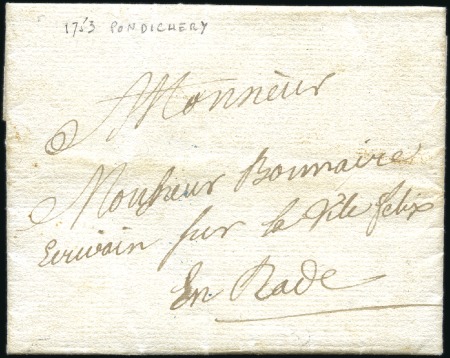 1753 PONDICHERY
Monsieur
Monsieur Bonnaire
Ecrivain sur la Ville felix
En Rade